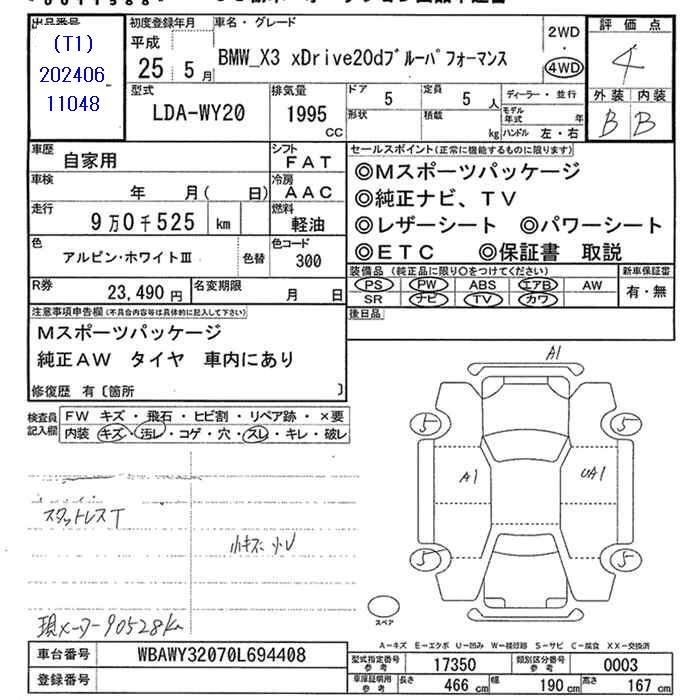 出品番号
(T1)
202406
11048
初度登録年月
平成
25 5 月
車名・グレード
BMW_X3 xDrive20dブルーパフォーマンス
2WD
・
4WD
評価点
4
外装 内装
B B
型式
LDA-WY20
排気量
1995
CC
ドア
5
形状
定員
5 人
積載
kg
ディーラー・並行
モデル年式 年
ハンドル 左・右
車歴
自家用
シフト
FAT
車検
年 月( 日)
冷房
AAC
走行
9万0千525 km
燃料
軽油
色
アルピン・ホワイトⅢ
色替
色コード
300
R券
23,490 円
名変期限
月 日
セールスポイント(正常に機能するものに限ります)
◎Mスポーツパッケージ
◎純正ナビ、TV
◎レザーシート ◎パワーシート
◎ETC ◎保証書 取説
装備品 (純正品に限り○をつけてください)
PS PW ABS エアB AW
SR ナビ TV カワ
新車保証書
有・無
後日品
注意事項申告欄(不具合内容等は具体的に記入して下さい)
Mスポーツパッケージ
純正AW タイヤ 車内にあり
修復歴 有〔箇所 〕
検査員記入欄
FW キズ・飛石・ヒビ割・リペア跡・×要
内装 キズ・汚レ・コゲ・穴・スレ・キレ・破レ
スタットレスT
小キズ 小U
現メーター90528km
A1
5 5
A1 UA1
5 5
スペア
A-キズ E-エクボ U-凹み W-補修跡 S-サビ C-腐食 XX-交換済
車台番号
WBAWY32070L694408
登録番号
型式指定番号参考
17350
類別区分番号参考
0003
車庫証明用参考
長さ 466 cm
幅 190 cm
高さ 167 cm